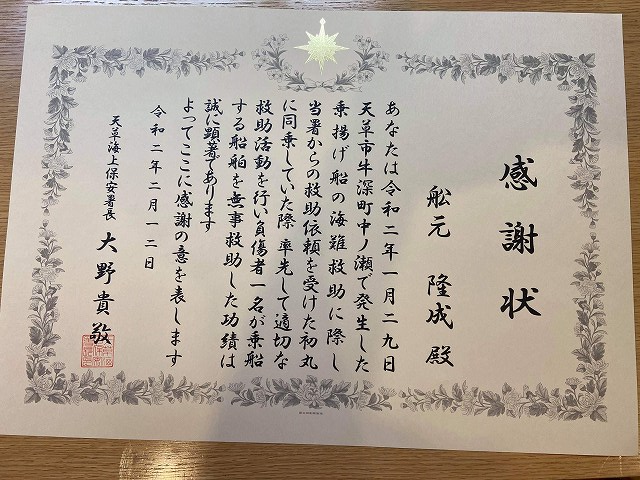 感謝状
舩元 隆成 殿
あなたは令和二年一月二九日
天草市牛深町中ノ瀬で発生した
乗揚げ船の海難救助に際し
当署からの救助依頼を受けた初丸
に同乗していた際 率先して適切な
救助活動を行い負傷者一名が乗船
する船舶を無事救助した功績は
誠に顕著であります
よってここに感謝の意を表します
令和二年二月一二日
天草海上保安署長 大野貴敬